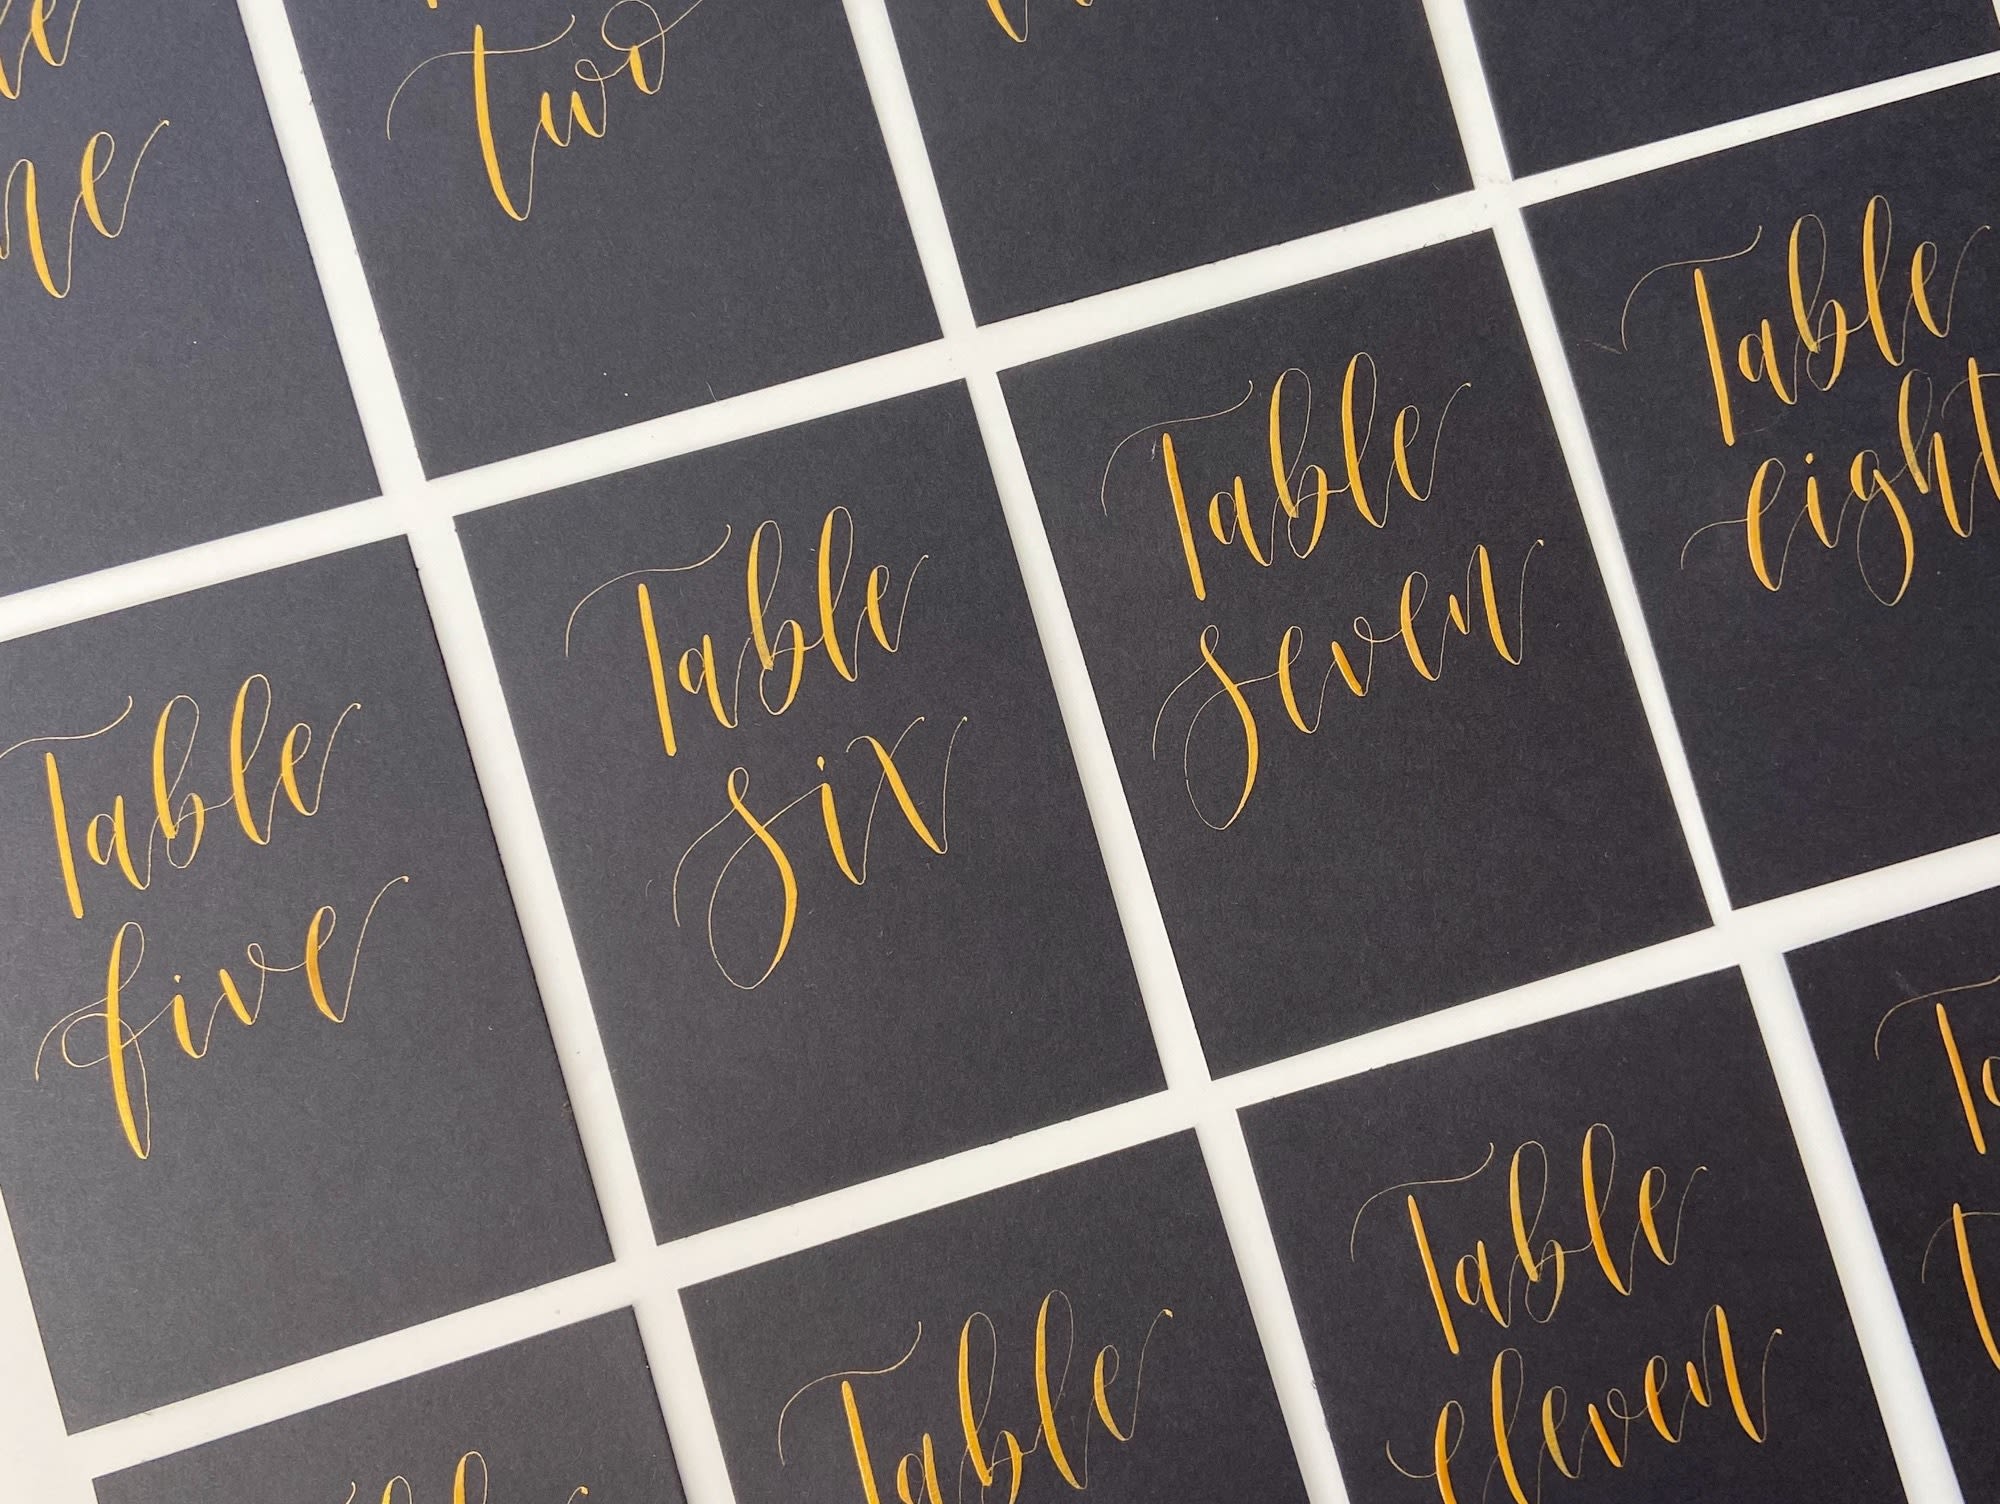 two
Table
five
Table
six
Table
seven
Table
eight
Table
Table
eleven